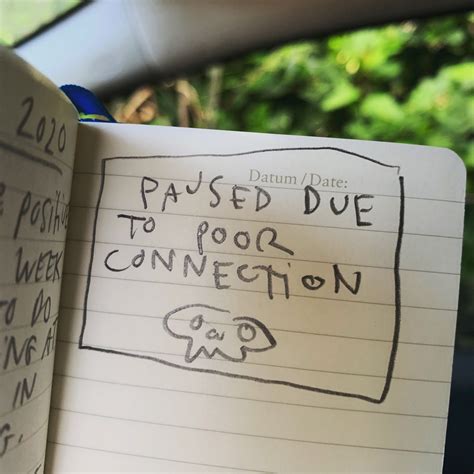 2020
POSITIVE
WEEK
TO DO
IN
Datum / Date:
PAUSED DUE
TO POOR
CONNECTION